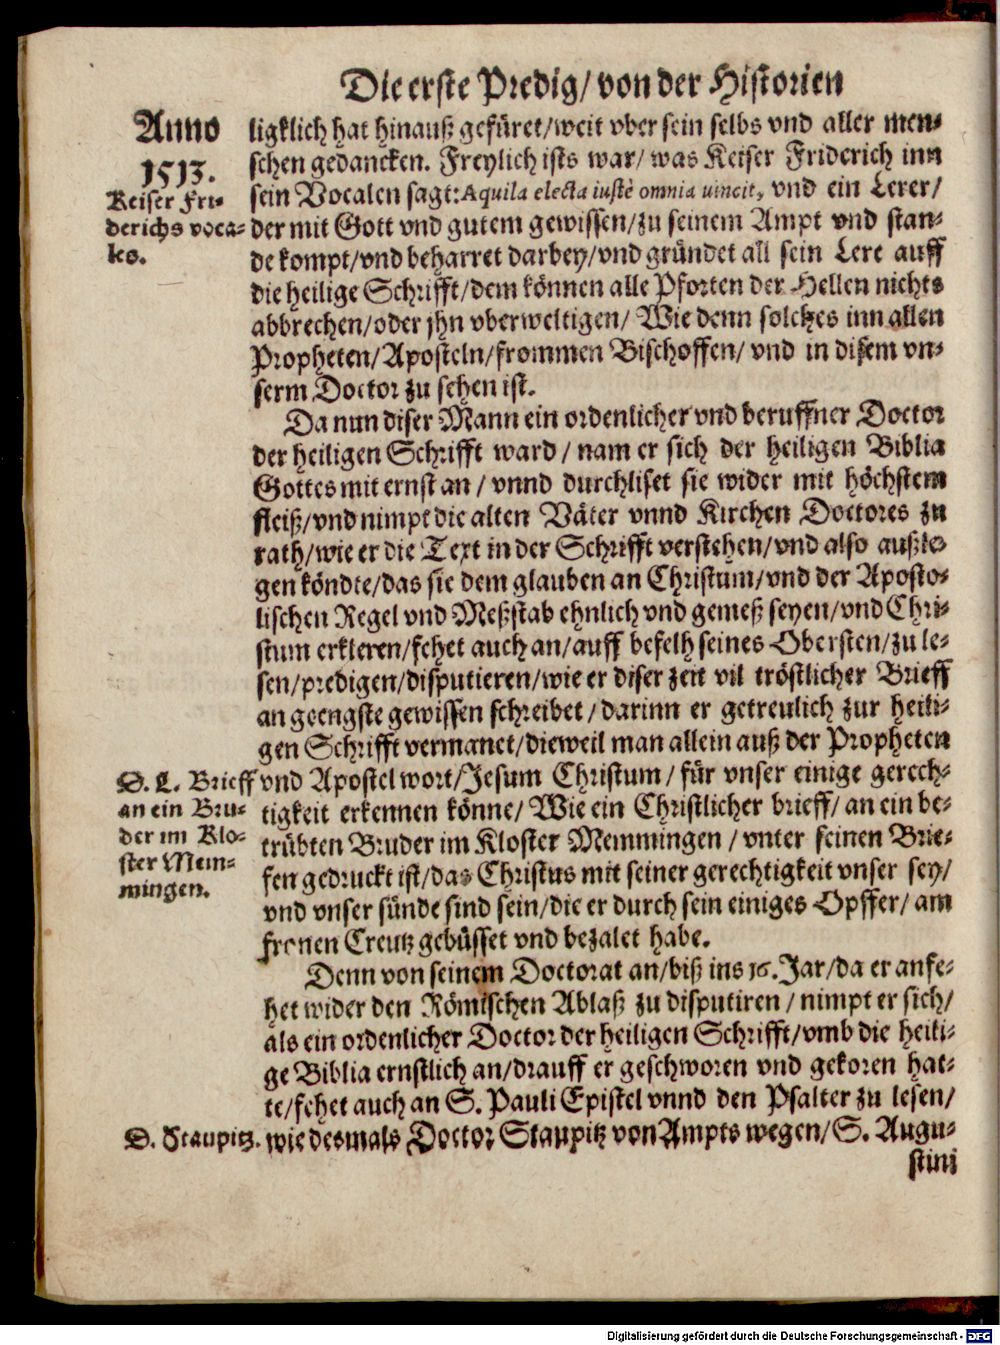 Die erste Predig/ von der Historien
Anno
1513.
Keiser Fri-
derichs voca-
les.
ligklich hat hinauß gefüret/weit vber sein selbs vnd aller men-
schen gedancken. Freylich ists war/ was Keiser Friderich inn
sein Vocalen sagt: Aquila electa iustè omnia uincit, vnd ein Lerer/
der mit Gott vnd gutem gewissen/zu seinem Ampt vnd stan-
de kompt/vnd beharret darbey/vnd gründet all sein Lere auff
die heilige Schrifft/dem können alle Pforten der Hellen nichts
abbrechen/oder jhn vberweltigen/ Wie denn solches inn allen
Propheten/Aposteln/frommen Bischoffen/ vnd in disem vn-
serm Doctor zu sehen ist.
Da nun diser Mann ein ordenlicher vnd beruffner Doctor
der heiligen Schrifft ward/ nam er sich der heiligen Biblia
Gottes mit ernst an/ vnnd durchliset sie wider mit höchstem
fleiß/vnd nimpt die alten Väter vnnd Kirchen Doctores zu
rath/wie er die Text in der Schrifft verstehen/vnd also außle-
gen köndte/das sie dem glauben an Christum/vnd der Aposto-
lischen Regel vnd Meßstab ehnlich vnd gemeß seyen/vnd Chri-
stum erkleren/fehet auch an/auff befelh seines Obersten/zu le-
sen/predigen/disputieren/wie er diser zeit vil tröstlicher Brieff
an geengste gewissen schreibet/darinn er getreulich zur heili-
gen Schrifft vermanet/dieweil man allein auß der Propheten
vnd Apostel wort/Jesum Christum/ für vnser einige gerech-
tigkeit erkennen könne/ Wie ein Christlicher brieff/ an ein be-
trübten Bruder im Kloster Memmingen/ vnter seinen Brie-
fen gedruckt ist/das Christus mit seiner gerechtigkeit vnser sey/
vnd vnser sünde sind sein/die er durch sein einiges Opffer/ am
fronen Creutz gebüsset vnd bezalet habe.
D. L. Brieff
an ein Bru-
der im Klo-
ster Mem-
mingen.
Denn von seinem Doctorat an/biß ins 16. Jar/da er anfe-
het wider den Römischen Ablaß zu disputiren/ nimpt er sich/
als ein ordenlicher Doctor der heiligen Schrifft/vmb die heili-
ge Biblia ernstlich an/drauff er geschworen vnd gekoren hat-
te/fehet auch an S. Pauli Epistel vnnd den Psalter zu lesen/
wie desmals Doctor Staupitz von Ampts wegen/ S. Augu-
D. Staupitz.
stini
Digitalisierung gefördert durch die Deutsche Forschungsgemeinschaft - DFG